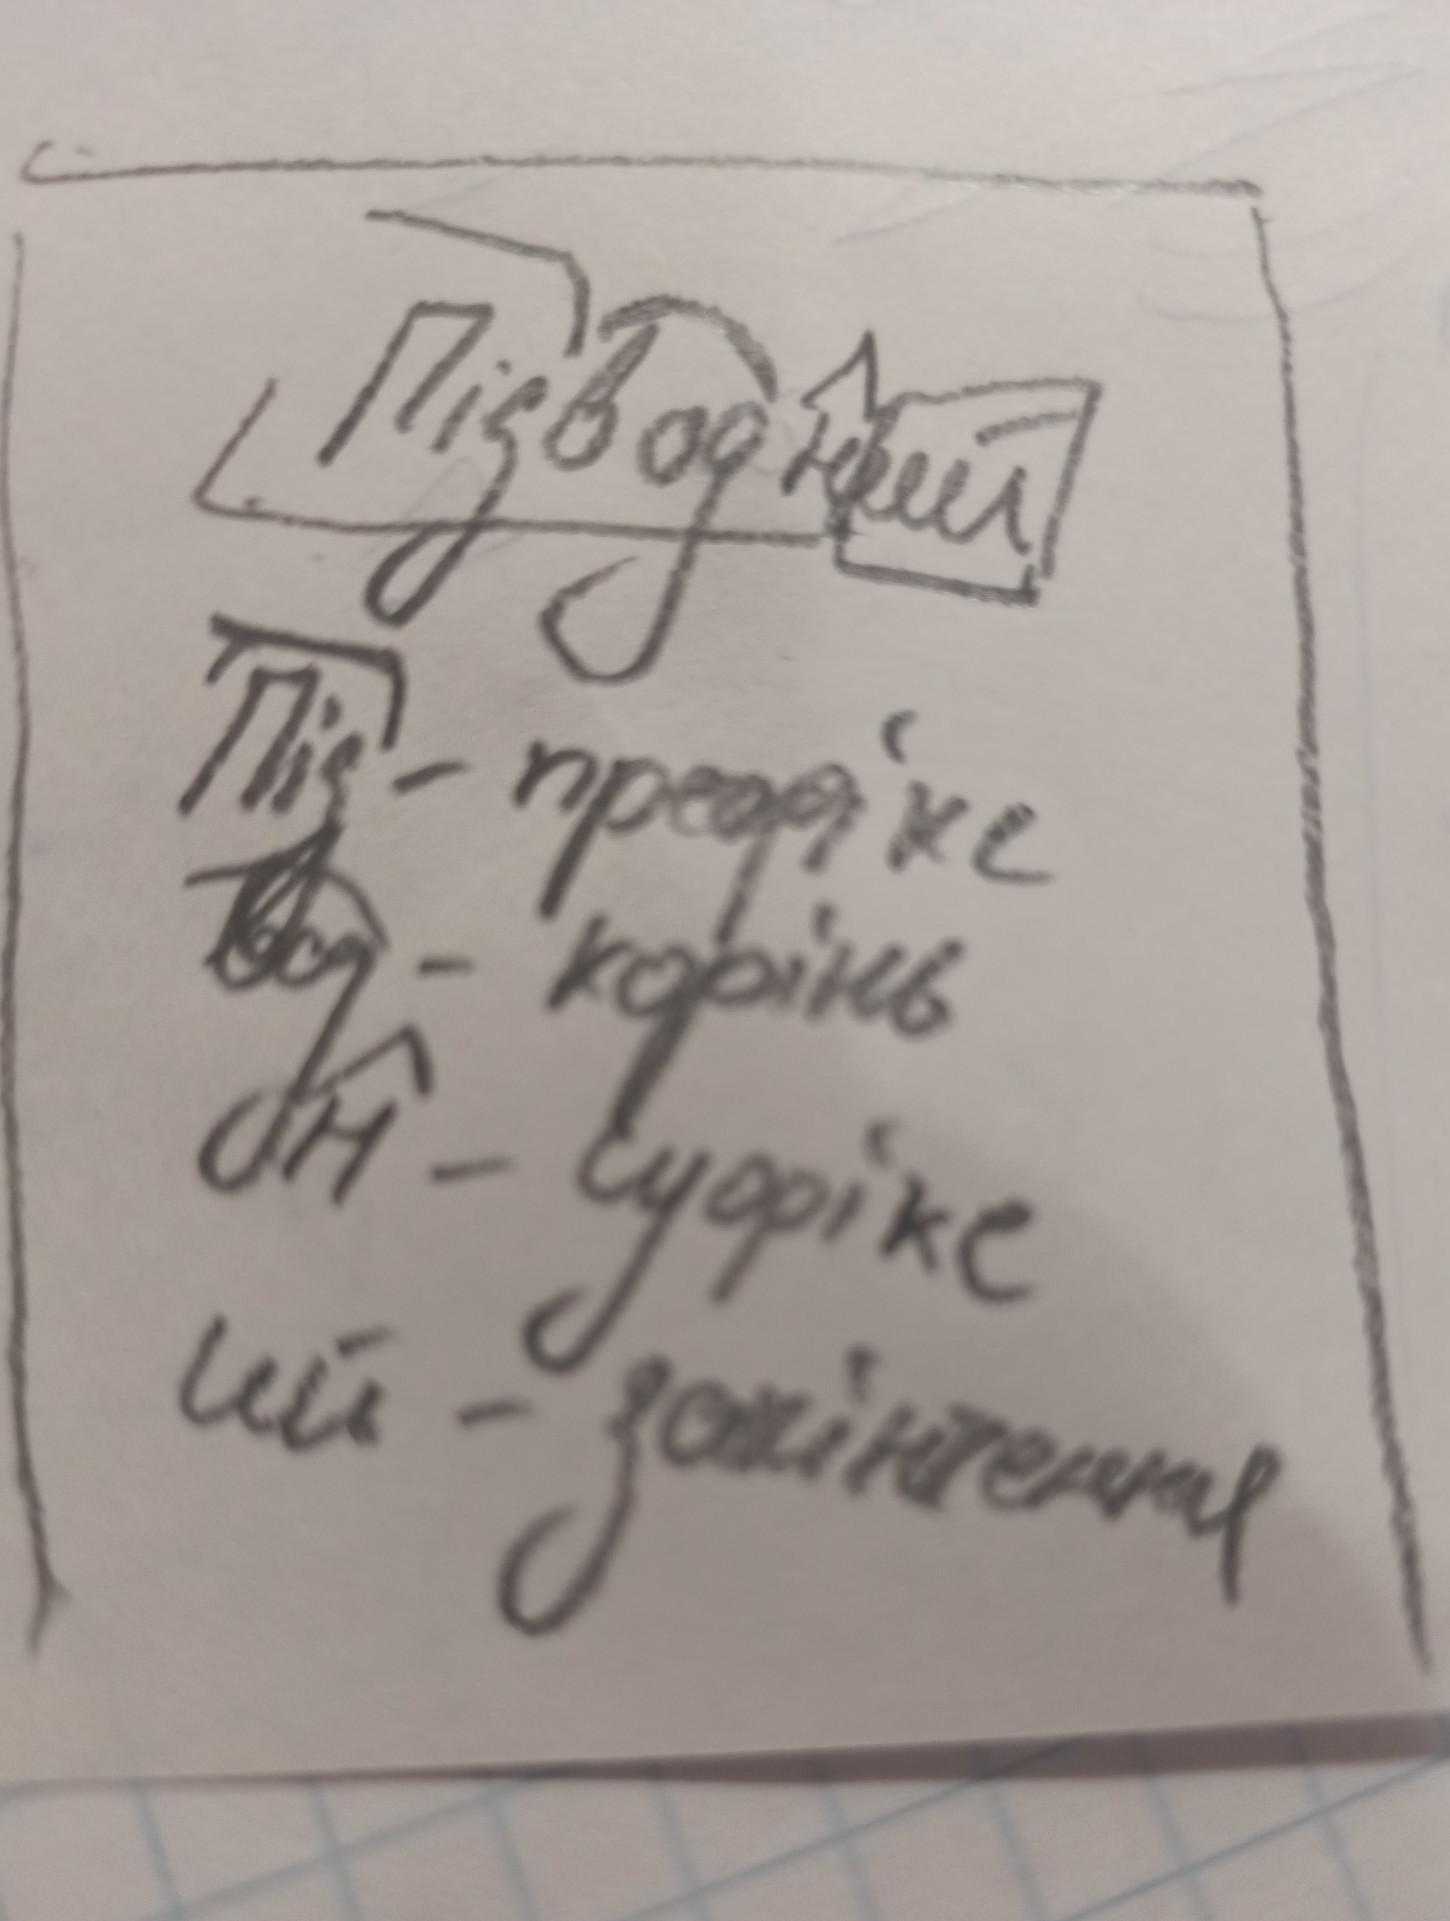 Підводний
Під - префікс
вод - корінь
н - суфікс
ий - закінчення